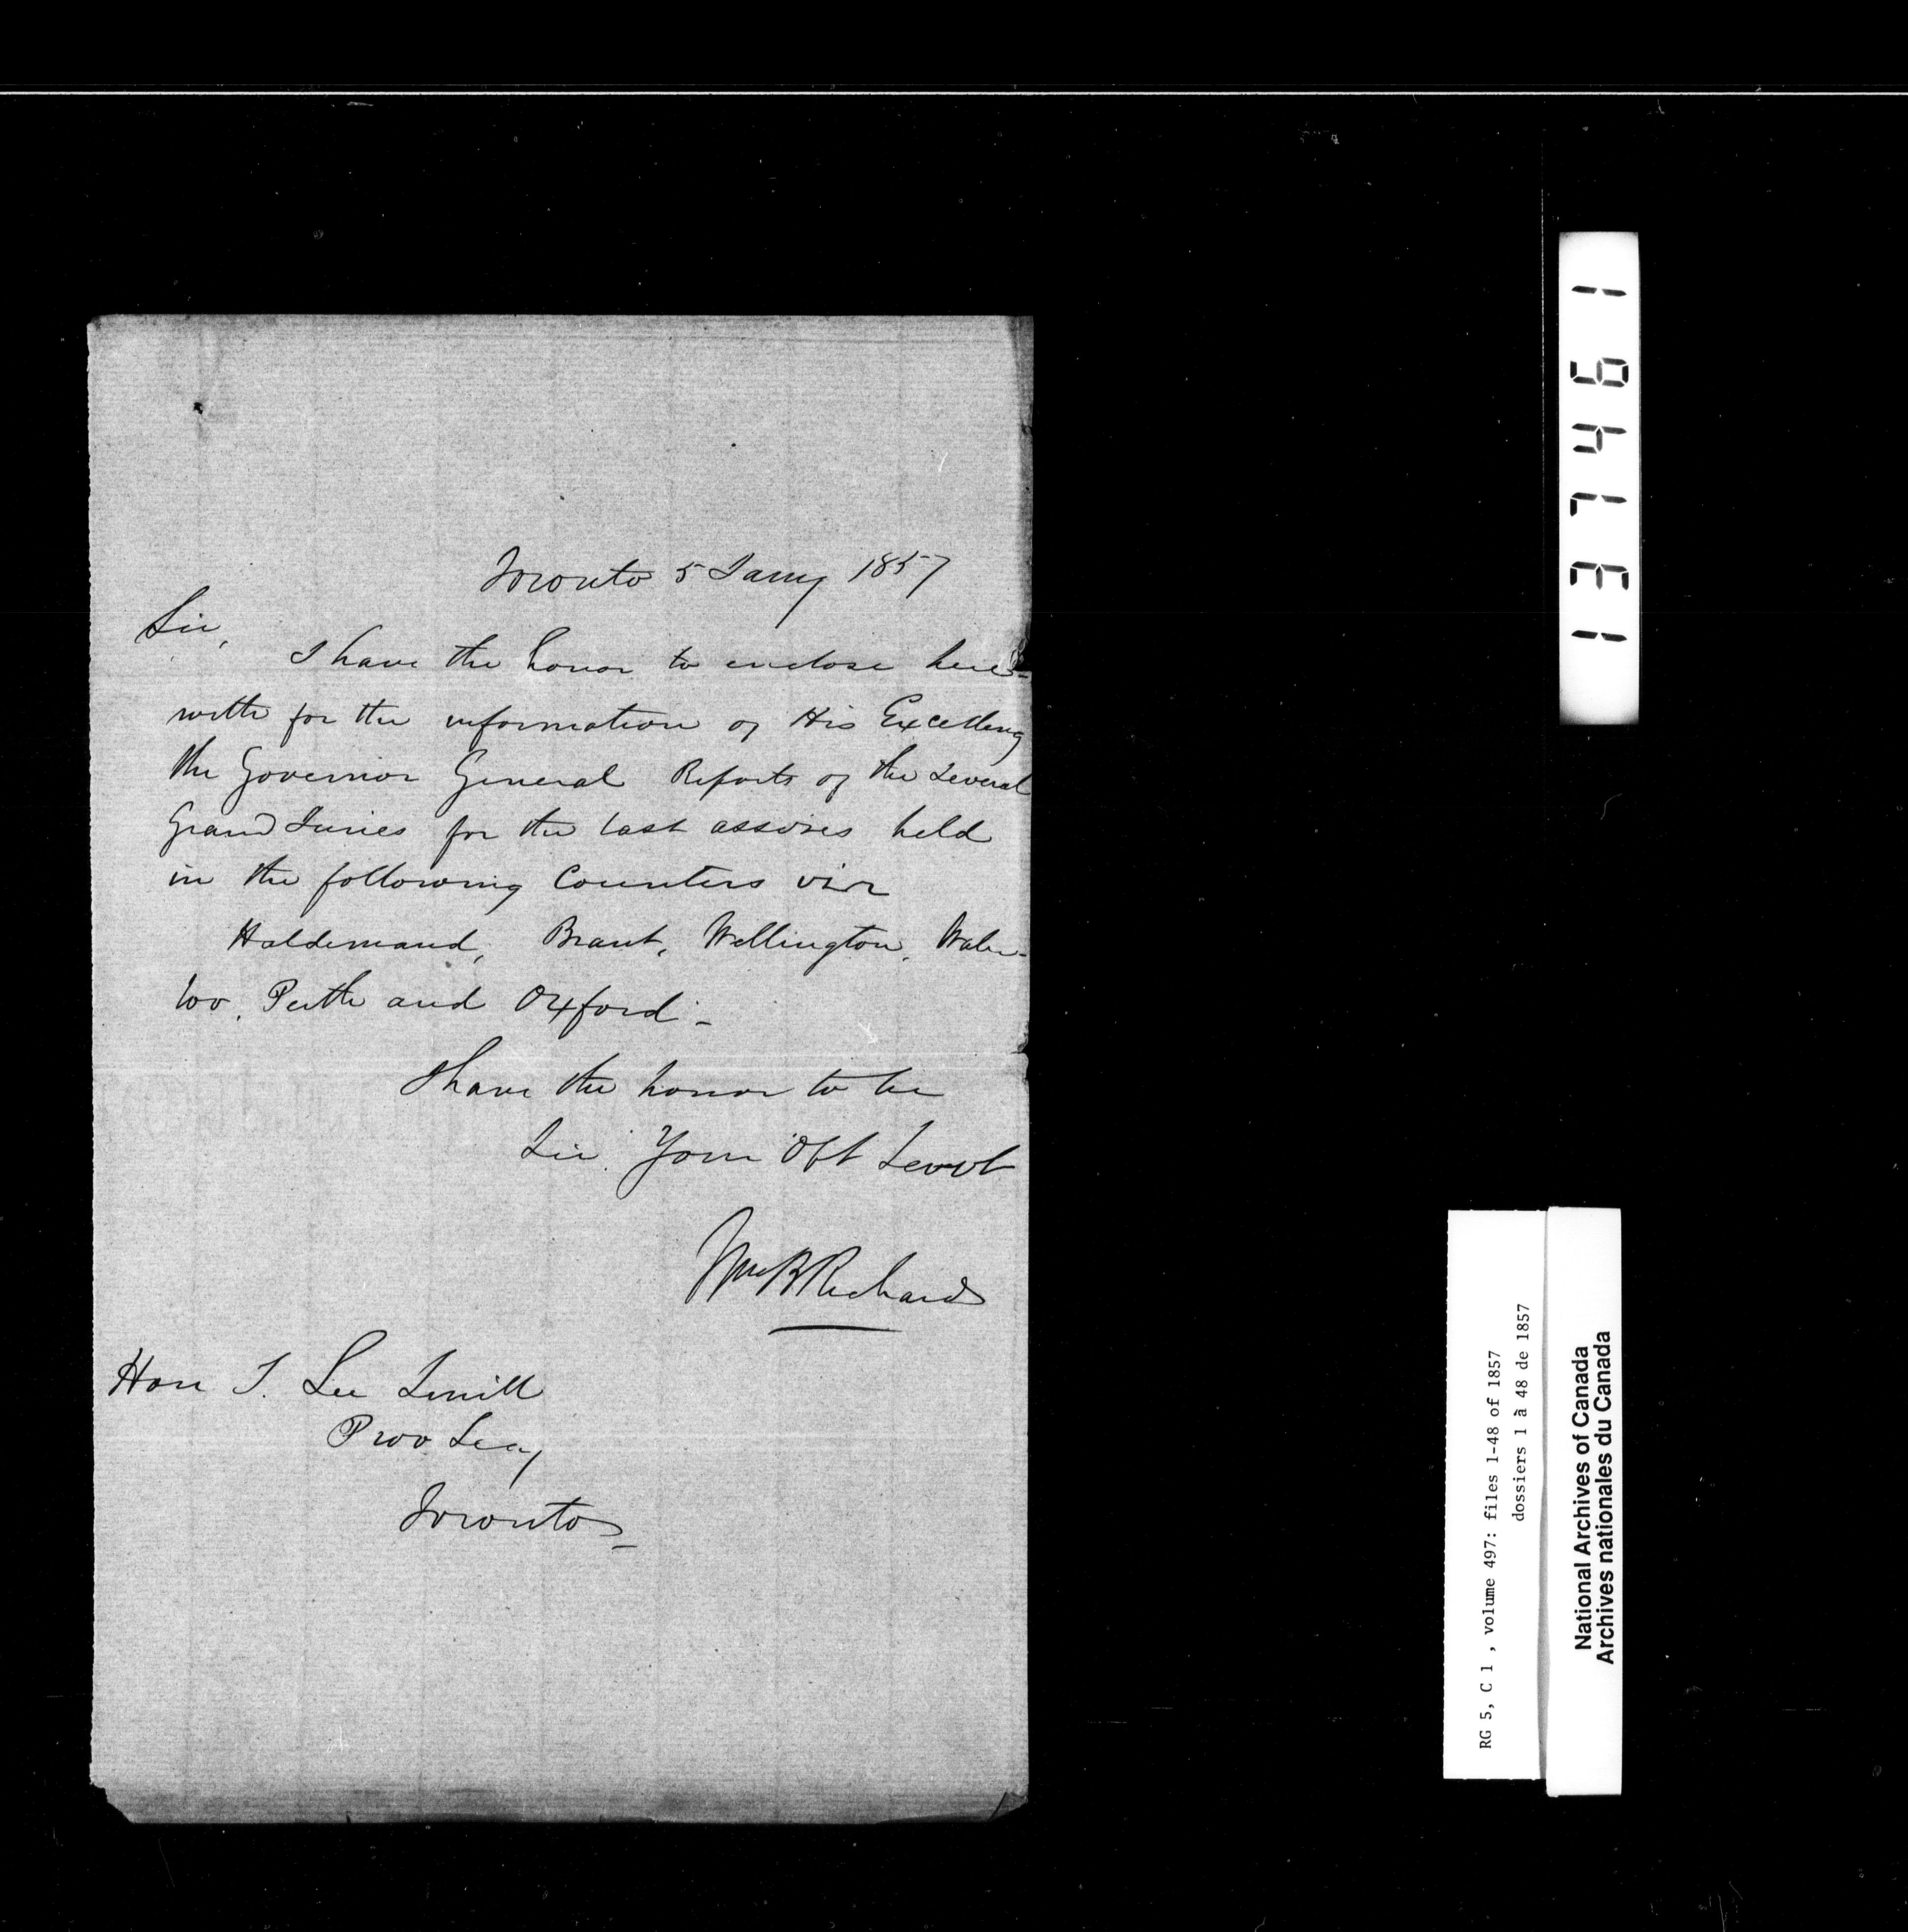 Toronto 5 Jany 1857
Sir,
I have the honor to enclose here-
with for the information of His Excellency
the Governor General Reports of the several
Grand Juries for the last assizes held
in the following Counties viz
Haldimand, Brant, Wellington, Water-
loo, Perth and Oxford -
I have the honor to be
Sir Your Obt Servt
Wm B Richards
Hon T. Lee Terrill
Prov. Secy
Toronto
137461
RG 5, C 1 , volume 497: files 1-48 of 1857
dossiers 1 à 48 de 1857
National Archives of Canada
Archives nationales du Canada